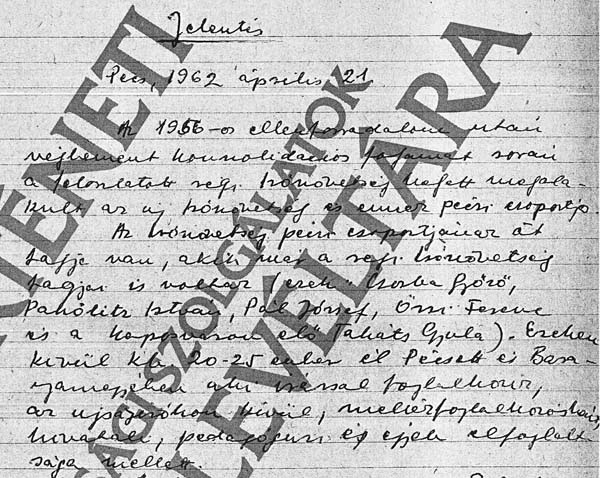 Jelentés
Pécs, 1962 április 21.
Az 1956-os ellenforradalom után
végbement konszolidációs folyamat során
a feloszlatott régi Írószövetség helyett megala-
kult az új Írószövetség és ennek pécsi csoportja.
Az Írószövetség pécsi csoportjának öt
tagja van, akik már a régi Írószövetség
tagjai is voltak (ezek: Csorba Győző,
Pákolitz István, Pál József, Örsi Ferenc
és a Kaposváron élő Takáts Gyula). Ezeken
kívül kb. 20-25 ember él Pécsett és Bara-
nyamegyében aki írással foglalkozik,
az újságírókon kívül, mellékfoglalkozásban,
hivatali, pedagógusi és egyéb elfoglalt-
sága mellett.
TÖRTÉNETI
SÁGI SZOLGÁLATOK
LEVÉLTÁRA